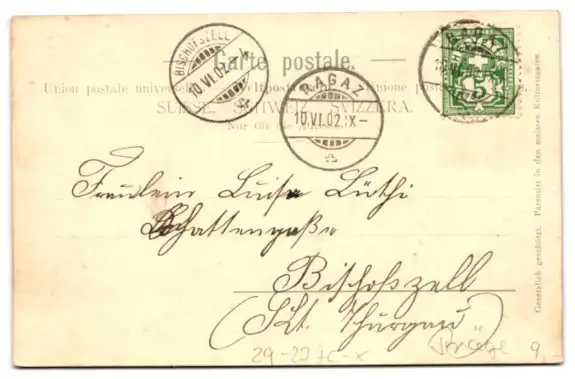 Carte postale.
Union postale universelle. Weltpostverein. Unione postale
SUISSE. SCHWEIZ. SVIZZERA.
Nur für die Adresse.
BISCHOFSZELL
10.VI.02.
RAGAZ
10.VI.02.IX–
RAGAZ
5
Fräulein Luise Lüthi
Schattengaße
Bischofszell
(Kt. Thurgau)
9.-
Gesetzlich geschützt. Patentirt in den meisten Kulturstaaten.